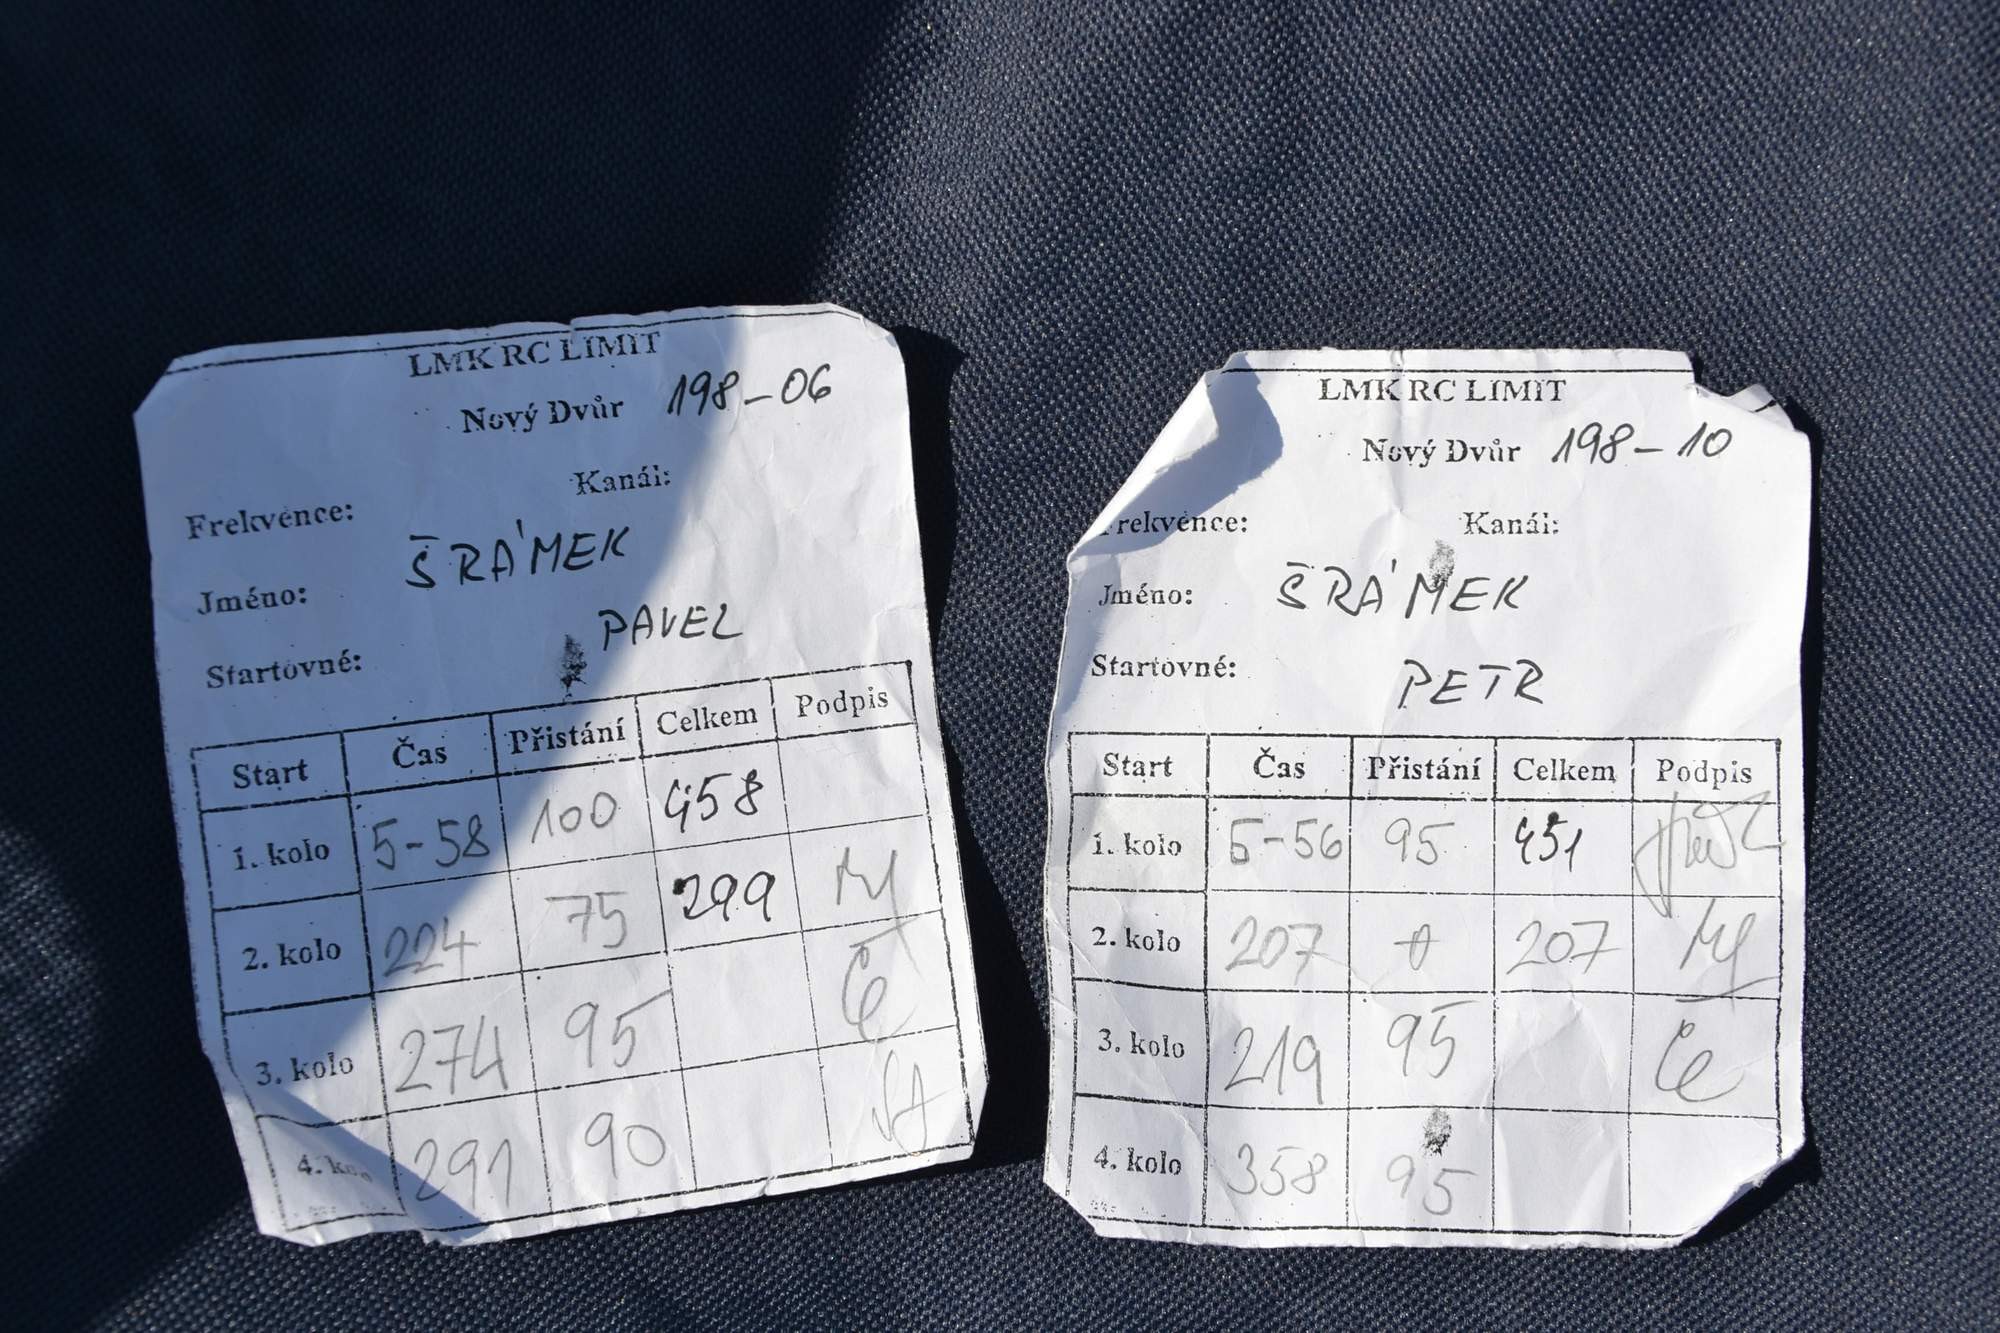 LMK RC LIMIT
Nový Dvůr 198-06
Frekvence: Kanál:
Jméno: ŠRÁMEK
PAVEL
Startovné:
Start Čas Přistání Celkem Podpis
1. kolo 5-58 100 458
2. kolo 224 75 299
3. kolo 274 95
4. kolo 291 90
LMK RC LIMIT
Nový Dvůr 198-10
Frekvence: Kanál:
Jméno: ŠRÁMEK
Startovné: PETR
Start Čas Přistání Celkem Podpis
1. kolo 5-56 95 451
2. kolo 207 0 207
3. kolo 219 95
4. kolo 358 95